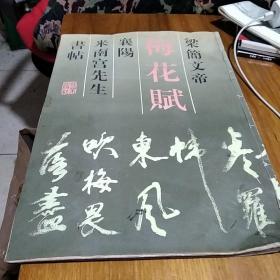 梁简文帝
梅花賦
襄陽
米南宫先生
書帖
羅
東風
吹梅畏
落盡